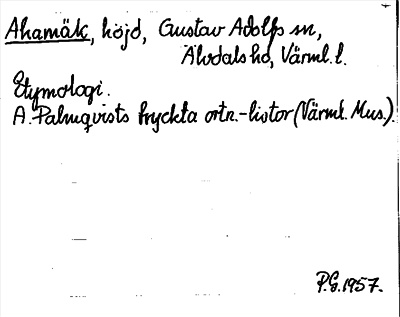 Ahamäk, höjd, Gustav Adolfs sn,
Älvdals hd, Värml. l.
Etymologi.
A. Palmqvists tryckta ortn.-listor (Värml. Mus.).
P.G. 1957.